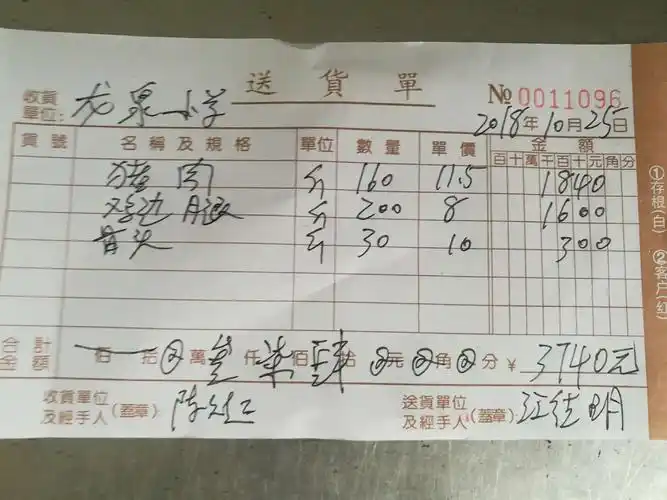 送貨單
№ 0011096
收貨單位: 龙泉小学
2018年10月25日
貨號 名稱及規格 單位 數量 單價 金額
百十萬千百十元角分
猪肉 斤 160 11.5 1840
鸡边腿 斤 200 8 1600
骨头 斤 30 10 300
合計金額 佰 拾 萬 仟 柒佰 肆拾 元 角 分 ¥ 3740元
收貨單位及經手人(蓋章):陈
送貨單位及經手人(蓋章):江 明
①存根(白) ②客户(红)